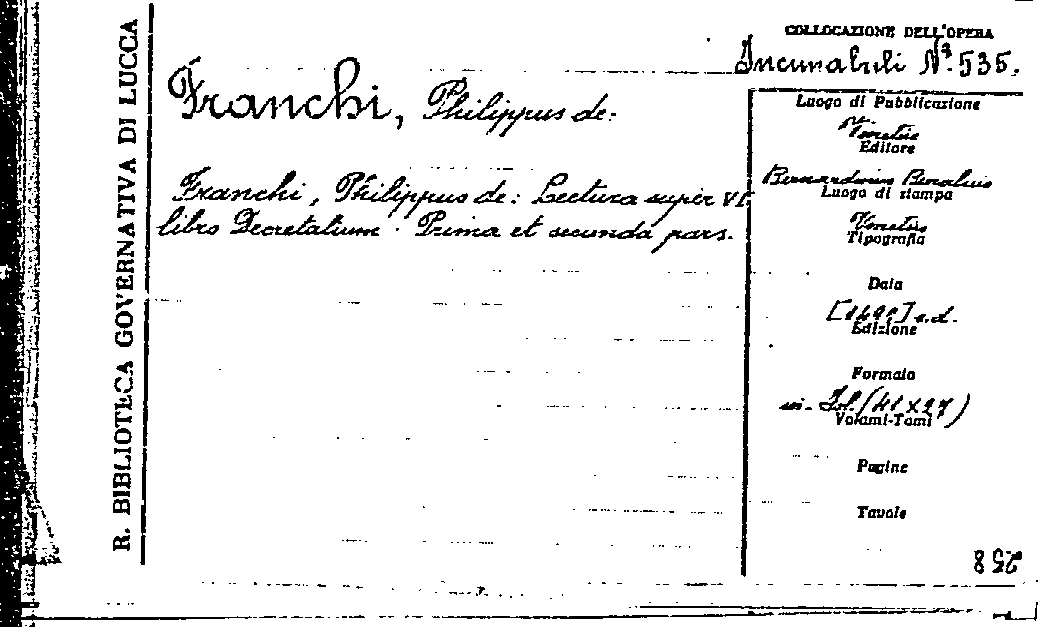 R. BIBLIOTECA GOVERNATIVA DI LUCCA
COLLOCAZIONE DELL'OPERA
Incunabuli Nº. 535.
Franchi, Philippus de:
Franchi, Philippus de: Lectura super VI.
libro Decretalium. Prima et secunda pars.
Luogo di Pubblicazione
Venetiis
Editore
Bernardinus Benalius
Luogo di stampa
Venetiis
Tipografia
Data
Edizione
Formato
in-Fol. (41 x 27)
Volumi-Tomi
Pagine
Tavole